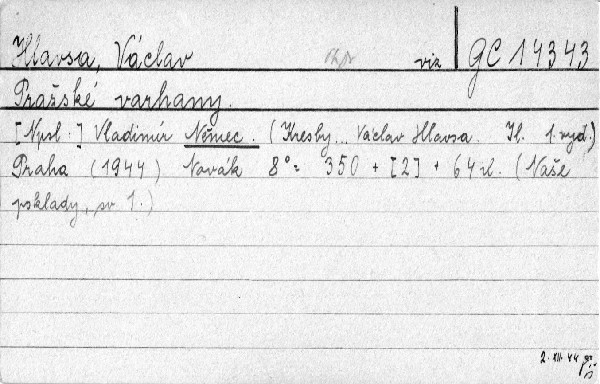 Hlavsa, Václav viz GC 14343
Pražské varhany.
[Npsl.:] Vladimír Němec. (Kresby... Václav Hlavsa. Il. 1. vyd.)
Praha (1944) Novák 8°= 350 + [2] + 64 il. (Naše
poklady, sv. 1.)
2. XII. 44